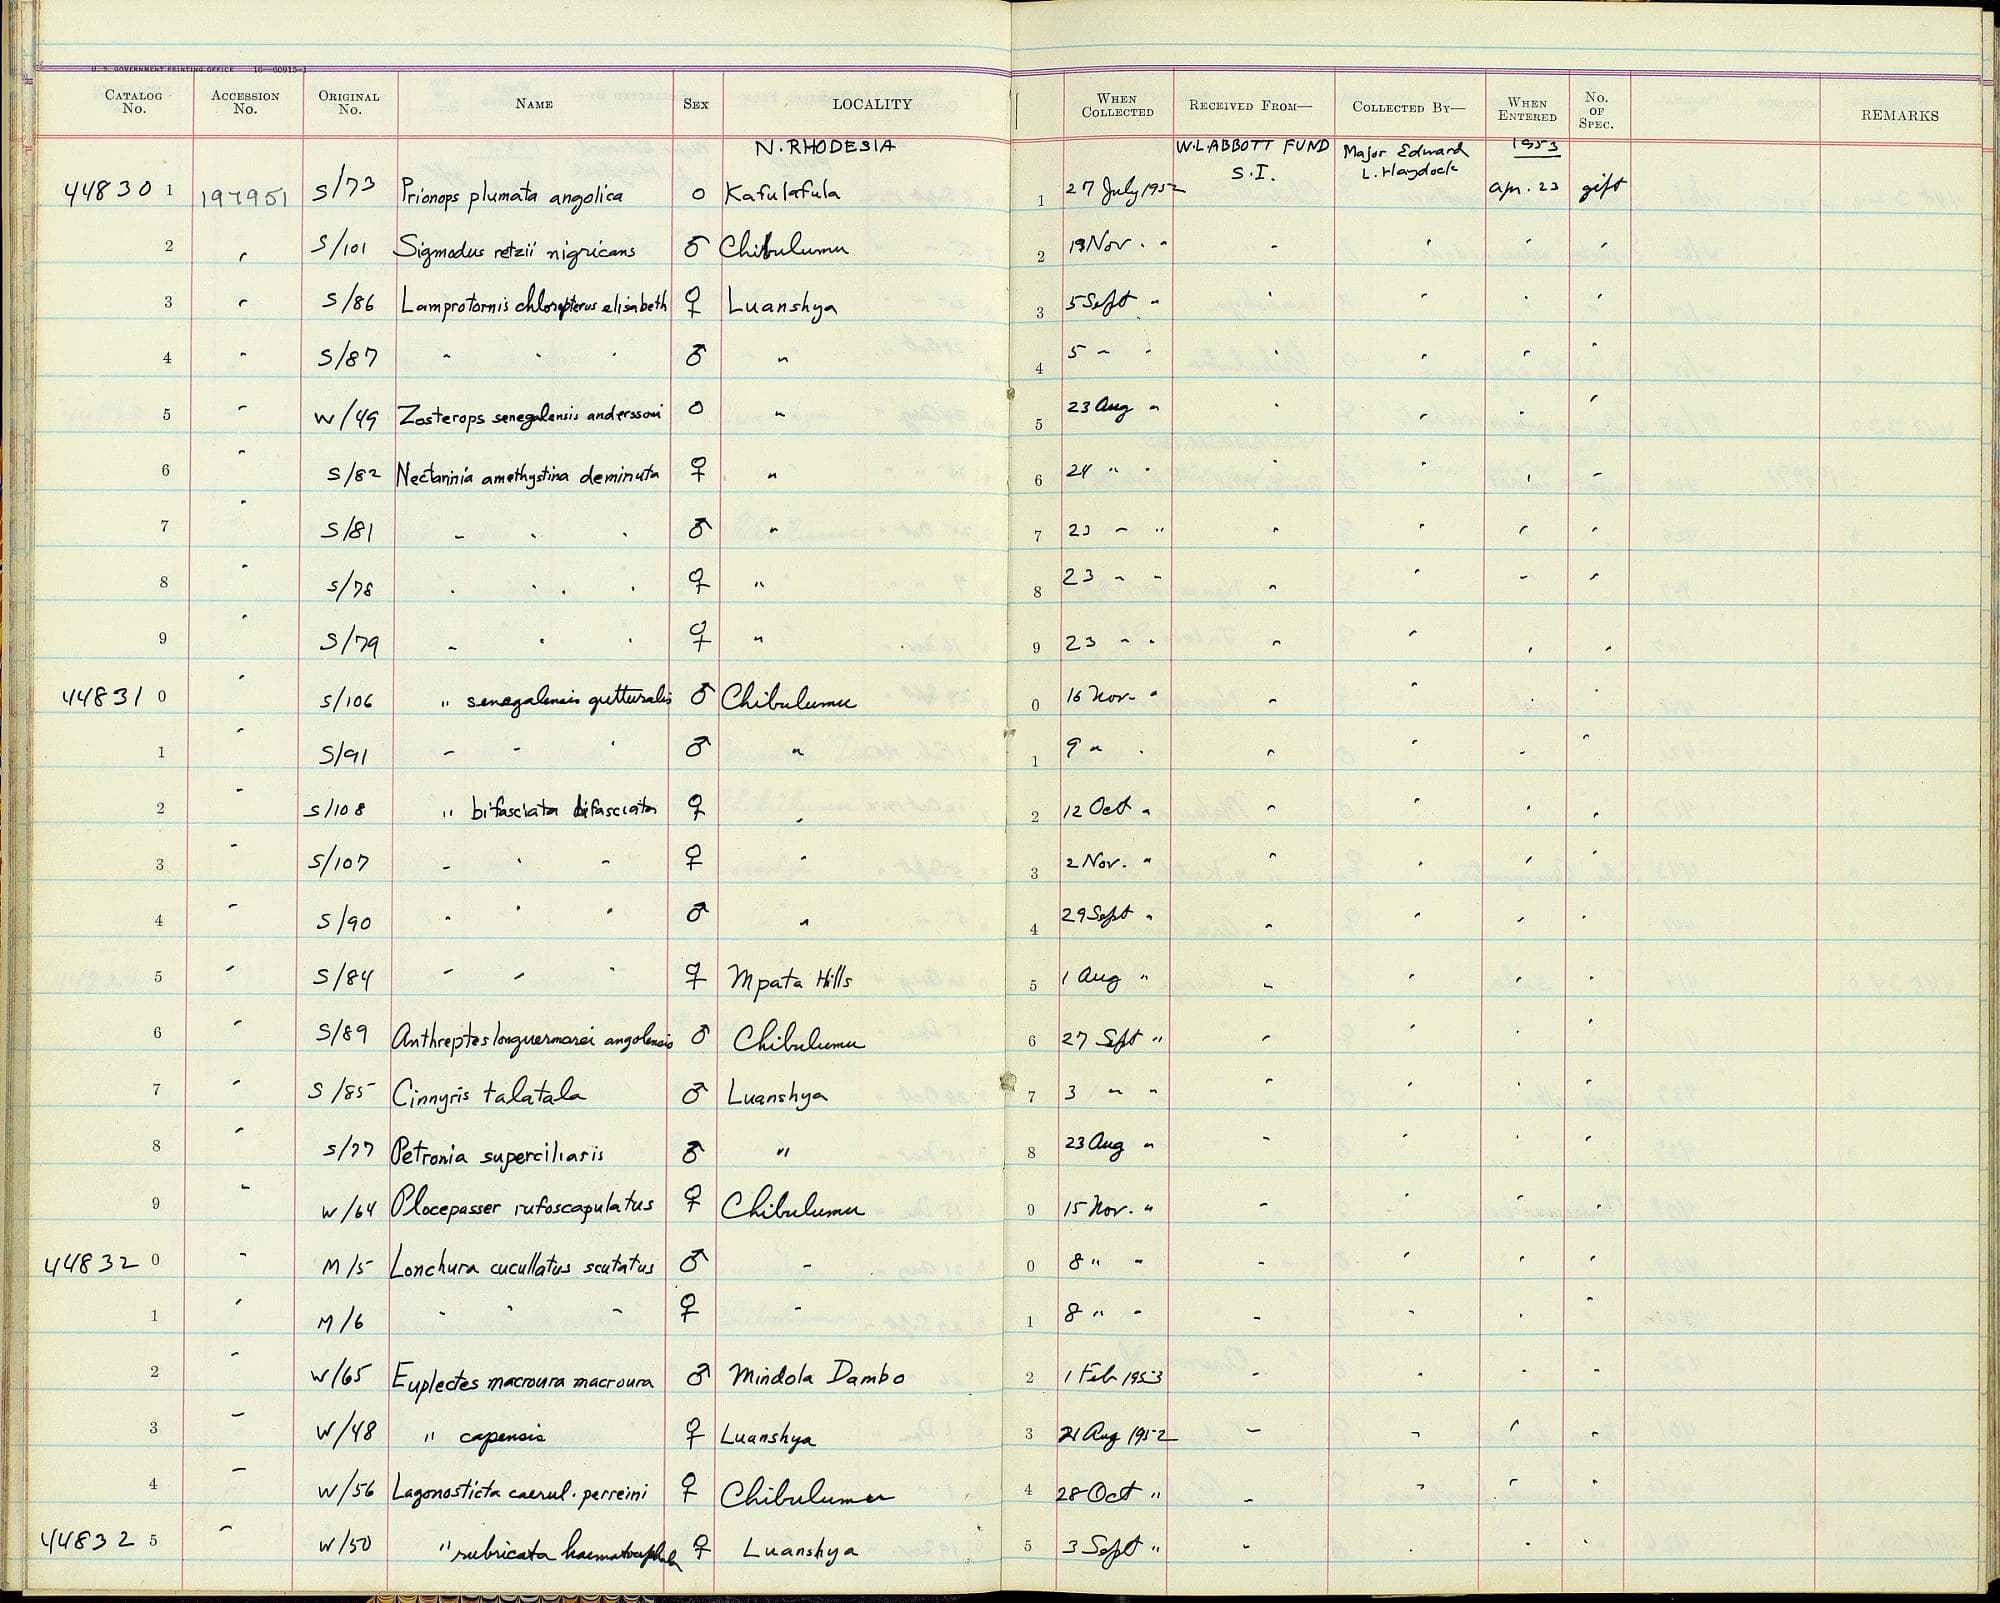 U. S. GOVERNMENT PRINTING OFFICE 16—60915-1
CATALOG No. ACCESSION No. ORIGINAL No. NAME SEX LOCALITY WHEN COLLECTED RECEIVED FROM— COLLECTED BY— WHEN ENTERED No. OF SPEC. REMARKS
N. RHODESIA W.L. ABBOTT FUND S.I. Major Edward L. Haydock 1953
448301 197951 S/73 Prionops plumata angolica o Kafulafula 1 27 July 1952 Apr. 23 gift
2 " S/101 Sigmodus retzii nigricans ♂ Chibulumu 2 19 Nov. " " " " "
3 " S/86 Lamprotornis chloropterus elisabeth ♀ Luanshya 3 5 Sept " " " " "
4 " S/87 " " " ♂ " 4 5 " " " " " "
5 " W/49 Zosterops senegalensis anderssoni o " 5 23 Aug " " " " "
6 " S/82 Nectarinia amethystina deminuta ♀ " 6 24 " " " " " "
7 " S/81 " " " ♂ " 7 23 " " " " " "
8 " S/78 " " " ♀ " 8 23 " " " " " "
9 " S/79 " " " ♀ " 9 23 " " " " " "
448310 " S/106 " senegalensis gutturalis ♂ Chibulumu 0 16 Nov. " " " " "
1 " S/91 " " " ♂ " 1 9 " " " " " "
2 " S/108 " bifasciata bifasciata ♀ " 2 12 Oct " " " " "
3 " S/107 " " " ♀ " 3 2 Nov. " " " " "
4 " S/90 " " " ♂ " 4 29 Sept " " " " "
5 " S/84 " " " ♀ Mpata Hills 5 1 Aug " " " " "
6 " S/89 Anthreptes longuemarei angolensis ♂ Chibulumu 6 27 Sept " " " " "
7 " S/85 Cinnyris talatala ♂ Luanshya 7 3 " " " " " "
8 " S/77 Petronia superciliaris ♂ " 8 23 Aug " " " " "
9 " W/64 Plocepasser rufoscapulatus ♀ Chibulumu 9 15 Nov. " " " " "
448320 " M/5 Lonchura cucullatus scutatus ♂ " 0 8 " " " " " "
1 " M/6 " " " ♀ " 1 8 " " " " " "
2 " W/65 Euplectes macroura macroura ♂ Mindola Dambo 2 1 Feb 1953 " " " "
3 " W/48 " capensis ♀ Luanshya 3 21 Aug 1952 " " " "
4 " W/56 Lagonosticta caerul. perreini ♀ Chibulumu 4 28 Oct " " " " "
448325 " W/50 " rubricata haematocephala ♀ Luanshya 5 3 Sept " " " " "